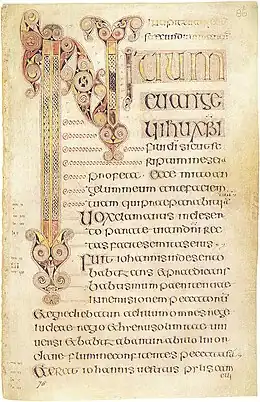 86
INITIUM
euange
lii ihu xpi
fili di sicut sc
riptum in esaia
profeta Ecce mitto an
gelum meum ante faciem
tuam qui praeparabit uia
Uox clamantis in deser
to parate uiam dni rec
tas facite semitas eius
Fuit iohannis in deserto
babtizans et praedicans
babtismum paenitentiae
in remisionem peccatoru
Et egrediebatur ad illum omnes
iudeae regio et hierusolimitae uni
uersi et babtizabantur ab illo in ior
dane flumine confitentes peccata sua
Et erat iohannis uestitus pilis cam
eli